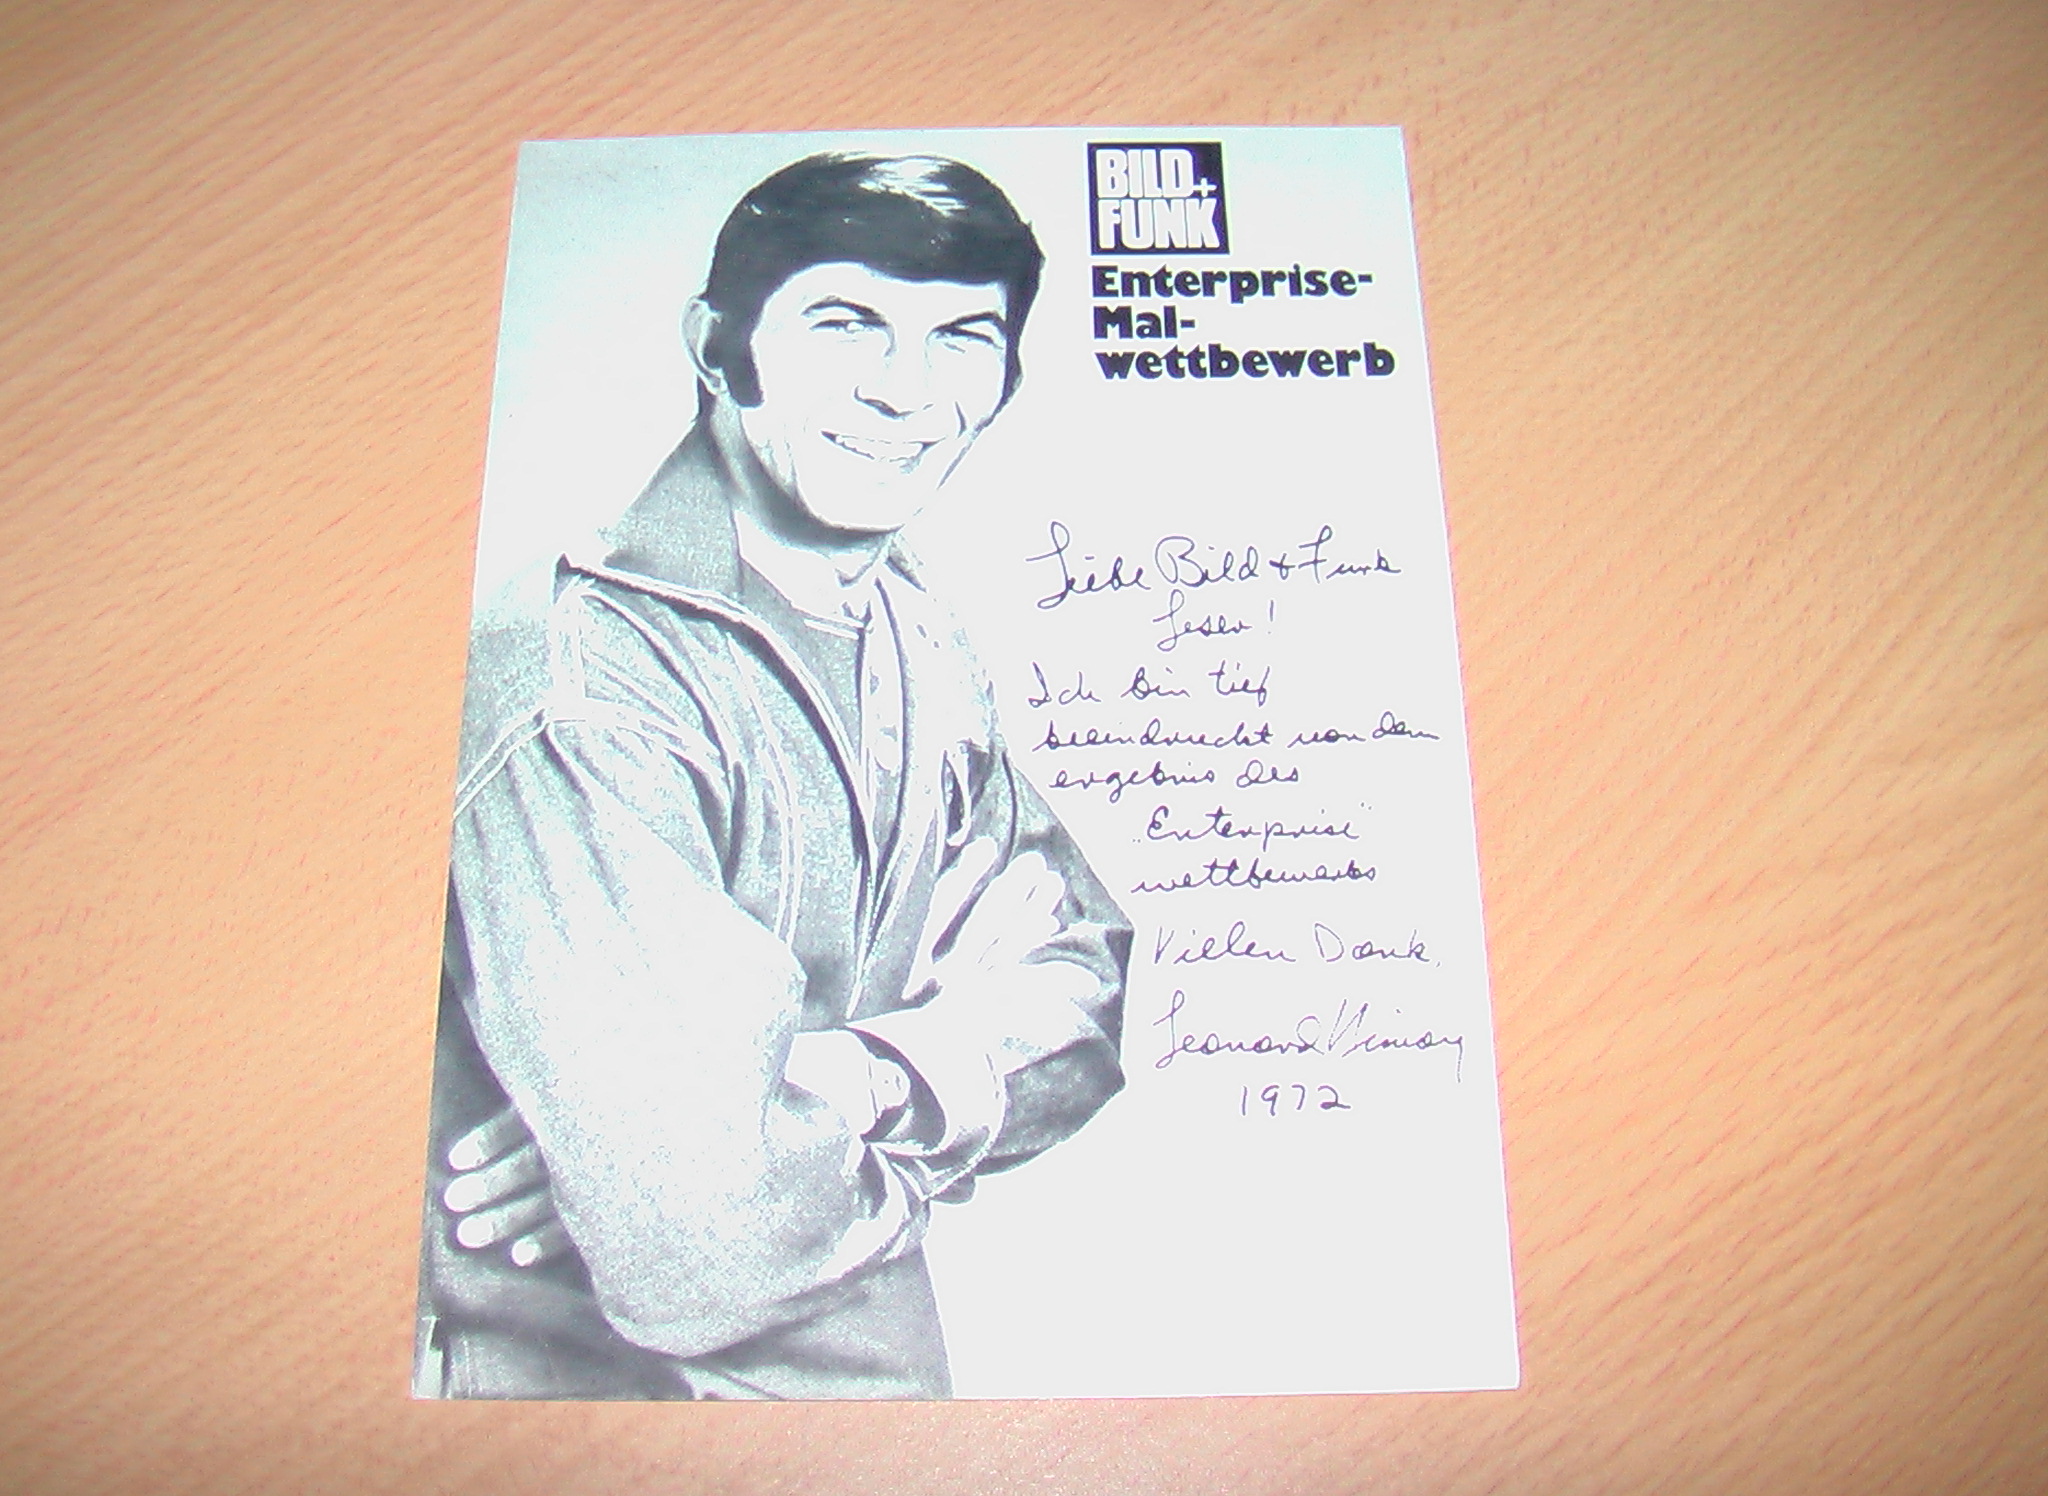 BILD+
FUNK
Enterprise-
Mal-
wettbewerb
Liebe Bild + Funk
Leser!
Ich bin tief
beeindruckt von dem
ergebnis des
"Enterprise"
wettbewerbs
Vielen Dank,
Leonard Nimoy
1972